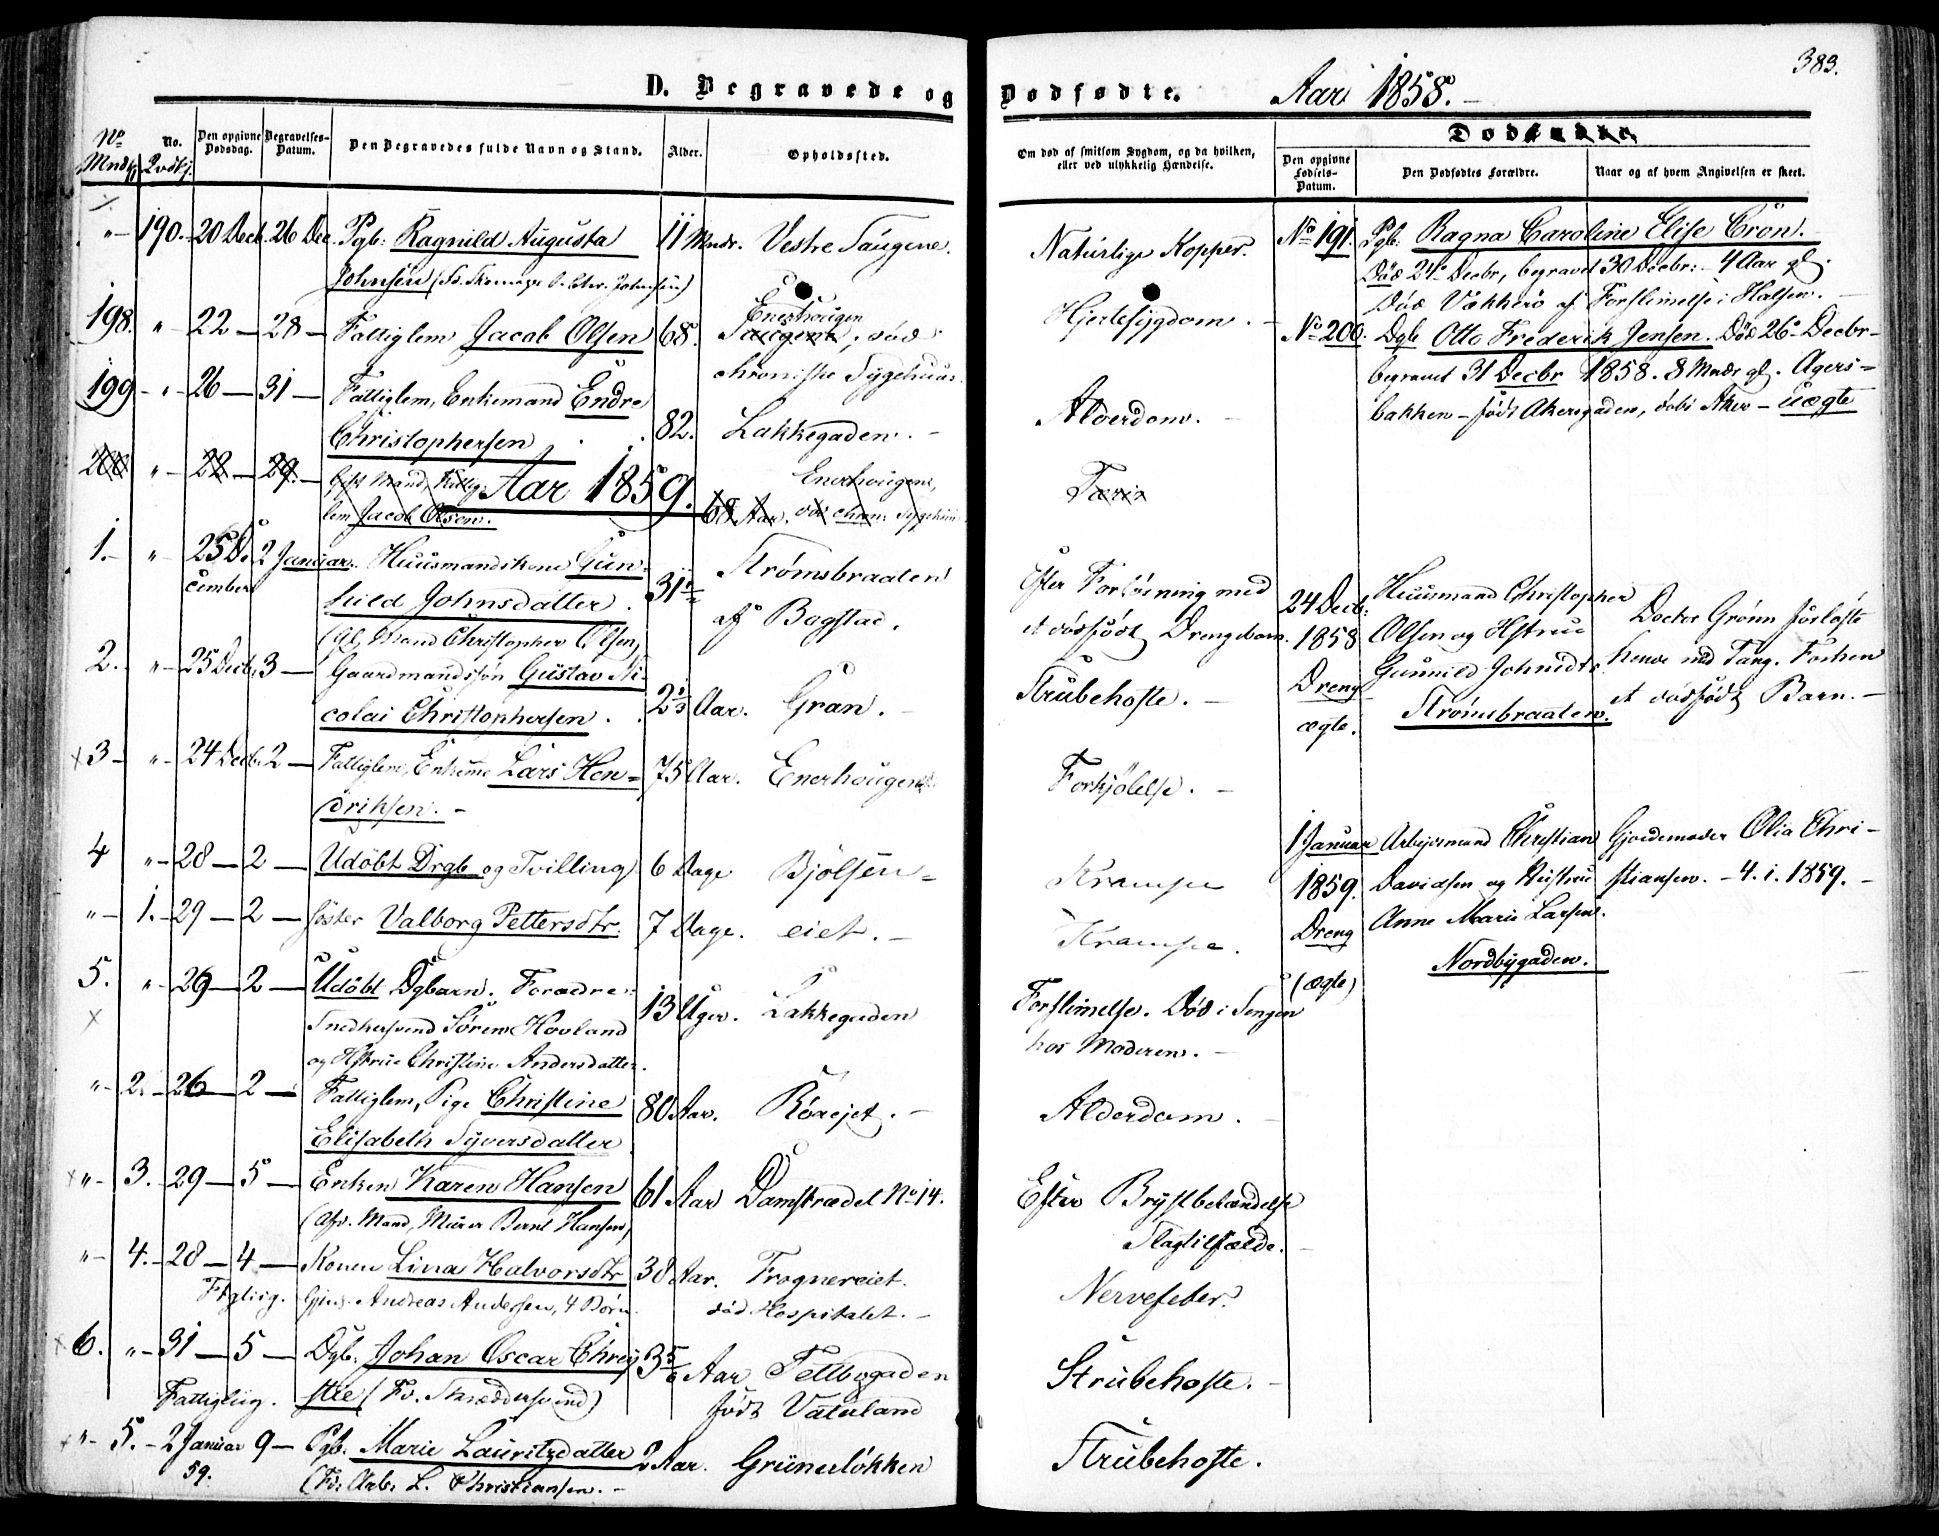 383.
D. Begravede og Dødfødte. Aar 1858.
No Mndk. No. Qvdkj. Den opgivne Dødsdag. Begravelses-Datum. Den Begravedes fulde Navn og Stand. Alder. Opholdssted.
Om død af smitsom Sygdom, og da hvilken, eller ved ulykkelig Hændelse. Dødfødte. Den opgivne Fødsels-Datum. Den Dødfødtes Forældre. Naar og af hvem Angivelsen er skeet.
"- 190. 20 Decb. 26 Dec. Pgb: Ragnild Augusta 11 Mndr. Vestre Saugene.
Johnsen
198. " 22 — 28 — Fattiglem Jacob Olsen 68. Enerhougen
Saugene, død
chroniske Sygehuus
199 - " 26 — 31 — Fattiglem, Enkemand Endre
Christophersen 82. Lakkegaden. -
200 " 22 — 29. — Gift Mand, Fattig- Enerhougen,
lem Jacob Olsen. 68 Aar. død chron: Sygehuus
Aar 1859.
1. - " 25 De- 2 Januar. Huusmandskone Gun-
cember hild Johnsdatter. 31 1/2 Strømsbraaten
(Gl. Mand Christopher Olsen) af Bogstad.
2. - " 25 Decb. 3 — Gaardmandssøn Gustav Ni-
colai Christophersen. 2 1/3 Aar. Gran. -
3 - " 24 Decb. 2 — Fattiglem, Enkem. Lars Hen- 75 Aar. Enerhougen
driksen. -
4 " 28 — 2 — Udøbt Drgb og Tvilling 6 Dage Bjølsen-
" 1. - 29 — 2 — søster Valborg Pettersdtr. 7 Dage. eiet. -
5. " 29 — 2 — Udøbt Dgbarn. Forældre:
Snedkersvend Sören Hovland 13 Uger. Lakkegaden
og Hstrue Christine Andersdatter.
" 2. - 26 — 2 — Fattiglem, Pige Christine 80 Aar. Rörejet. -
Elisabeth Syversdatter
" 3. 29 — 5 — Enken Karen Hansen 61 Aar Damstrædet No 14.
(Afd. Mand, Murer Bernt Hansen)
" 4. - 28 — 4 — Konen Lina Halvorsdtr 38 Aar. Frognereiet.
Andreas Andersen, 4 Børn. død Hospitalet. -
6. " 31 — 5 — Dgb. Johan Oscar Chri- 3 5/6 Aar Teltbogaden
Fattiglig. stie født Vaterland
" 5. - 2 Januar 9 — Pgb. Marie Lauritzdatter 2 Aar. Grünerløkken
59. (Fd: Arb. L. Christiansen. -
Naturlige Kopper.
Hjertesygdom. -
Alderdom. -
Efter Forløsning med
et dødfødt Drengebarn.
Strubehoste. -
Forkjølelse. -
Krampe
Krampe.
Forslimelse. Død i Sengen
hos Moderen. -
Alderdom. -
Efter Brystbetændelse
Slagtilfælde. -
Nervefeber.
Strubehoste. -
Strubehoste.
No 191. Pgb. Ragna Caroline Elise Crön.
Død 24 Decbr, begravet 30 Decbr: - 4 Aar gl.
død Vækkerö af Forslimelse i Halsen. -
No 200. Dgb Otto Frederik Jensen. Død 26 Decbr-
begravet 31 Decbr 1858. 8 Mndr gl. Agers-
bakken - født Akersgaden, døbt Aker - Uægte
24 Decb: Huusmand Christopher
1858 Olsen og Hstrue
Dreng Gunnild Johnsdtr
ægte. Strømsbraaten.
Doctor Grønn forløste
hende med Tang. Forhen
et dødfødt Barn. -
1 Januar Arbejdsmand Christian
1859. Davidsen og Hustrue
Dreng Anne Marie Larsen.
(ægte) Nordbygaden.
Gjordemoder Olia Chri-
stiansen. - 4. 1. 1859. -